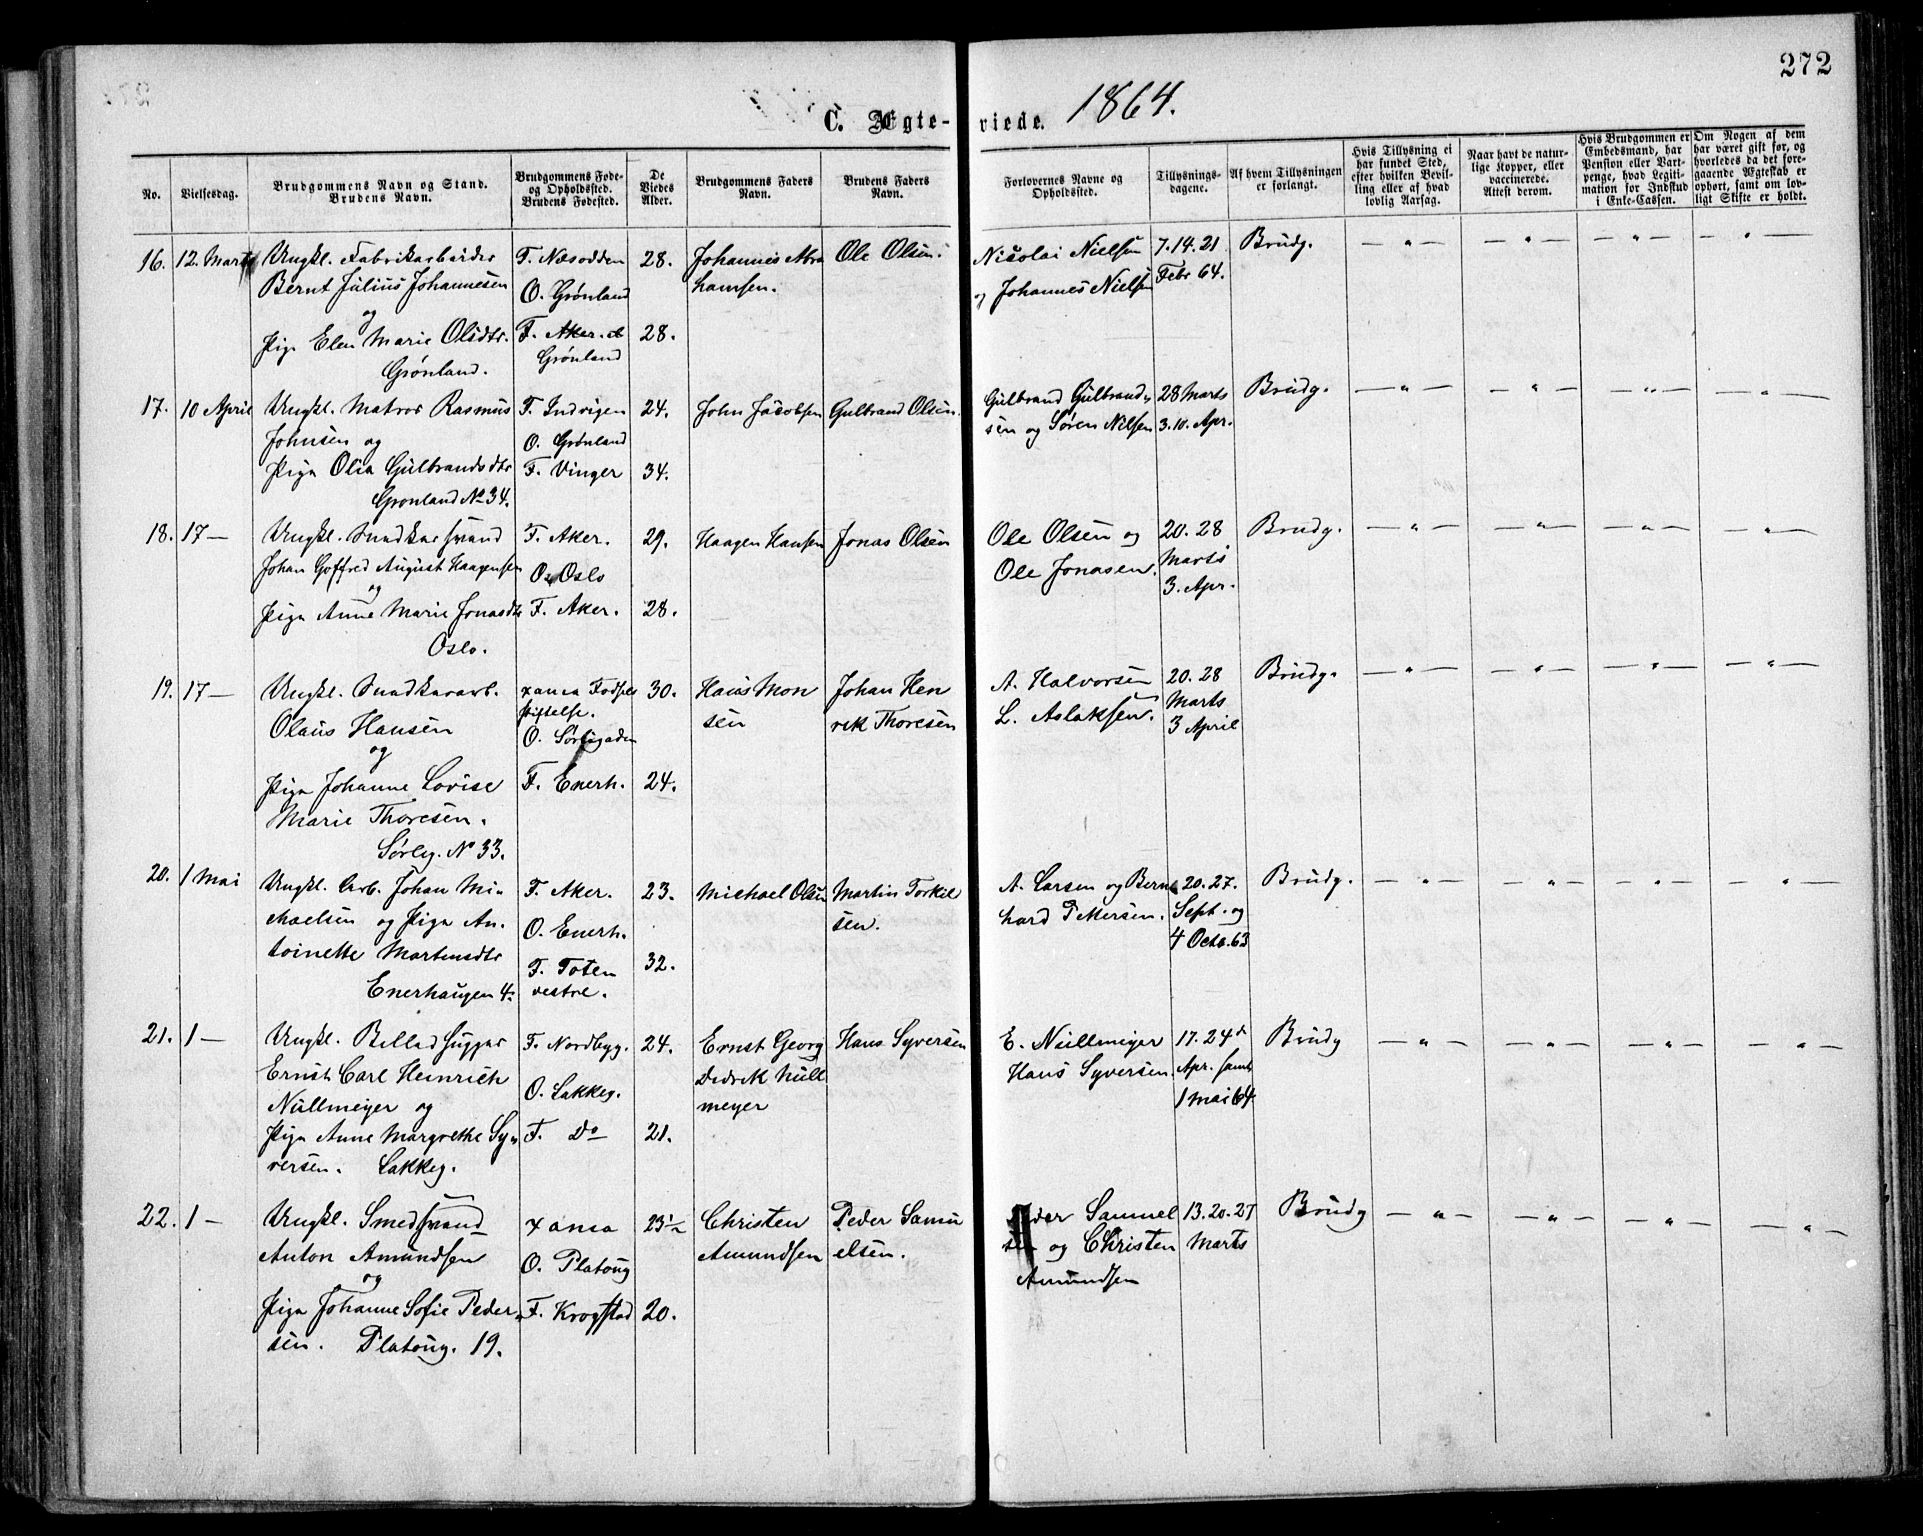 272
C. Ægte- viede. 1864.
No.
Vielsesdag.
Brudgommens Navn og Stand.
Brudens Navn.
Brudgommens Føde-
og Opholdssted.
Brudens Fødested.
De
Viedes
Alder.
Brudgommens Faders
Navn.
Brudens Faders
Navn.
Forlovernes Navne og
Opholdssted.
Tillysnings-
dagene.
Af hvem Tillysningen
er forlangt.
Hvis Tillysning ei
har fundet Sted,
efter hvilken Bevil-
ling eller af hvad
lovlig Aarsag.
Naar havt de natur-
lige Kopper, eller
vaccinerede.
Attest derom.
Hvis Brudgommen er
Embedsmand, har
Pension eller Vart-
penge, hvad Legiti-
mation for Indskud
i Enke-Cassen.
Om Nogen af dem
har været gift før, og
hvorledes da det fore-
gaaende Ægteskab er
ophørt, samt om lov-
ligt Skifte er holdt.
16. 12. Marts Ungkl. Fabrikarbeider F. Næsodden 28. Johannes Abra Ole Olsen. Nicolai Nielsen 7. 14. 21 Brudg. — " — — " — — " — — " —
Bernt Julius Johannesen O. Grønland hamsen. og Johannes Nielsen Febr 64.
og
Pige Elen Marie Olsdtr. F. Aker. 28.
Grønland. Grønland
17. 10 April Ungkl. Matros Rasmus F. Indvigen 24. John Jacobsen Gulbrand Olsen. Gulbrand Gulbrand 28 Marts Brudg. — " — — " — — " — — " —
Johnsen og O. Grønland sen og Søren Nilsen 3. 10. Apr.
Pige Olia Gulbrandsdtr F. Vinger 34.
Grønland No 34.
18. 17 — Ungkl. Snedkersvend F. Aker. 29. Haagen Hansen Jonas Olsen Ole Olsen og 20. 28 Brudg. — " — — " — — " — — " —
Johan Goffred August Haagensen O. Oslo Ole Jonasen. Marts
og 3. Apr.
Pige Anne Marie Jonasdtr F. Aker. 28.
Oslo.
19. 17 — Ungkl. Snedkerarb. xania Fødsels 30. Hans Mon Johan Hen A. Halvorsen 20. 28 Brudg. — " — — " — — " — — " —
Olaus Hansen stiftelse. sen rik Thoresen L. Aslaksen. Marts
og O. Sørligaden 3 April
Pige Johanne Lovise F. Enerh. 24.
Marie Thoresen.
Sørlig. No 33.
20. 1 Mai Ungkl. Arb. Johan Mi- F. Aker. 23. Michael Olsen Martin Torkil A. Larsen og Bern 20. 27. Brudg. — " — — " — — " — — " —
chaelsen og Pige An- O. Enerh. sen. hard Pettersen. Sept. og
toinette Martinsdtr F. Toten 32. 4 Octb. 63
Enerhaugen 4. vestre.
21. 1 — Ungkl. Billedhugger F. Nordbyg. 24. Ernst Georg Hans Syversen E. Nüllmeijer 17. 24d Brudg — " — — " — — " — — " —
Ernst Carl Heinrich O. Lakkeg. Didrik Nüll Hans Syversen. Apr. samt
Nüllmeijer og meyer 1 Mai 64
Pige Anne Margrethe Sy- F. Do 21.
versen. Lakkeg.
22. 1 — Ungkl. Smedsvend xania 23½ Christen Peder Samu Peder Samuel 13. 20. 27 Brudg — " — — " — — " — — " —
Anton Amundsen O. Platoug Amundsen elsen. sen og Christen Marts
og Amundsen
Pige Johanne Sofie Peder- F. Krogstad 20.
sen. Platoug. 19.